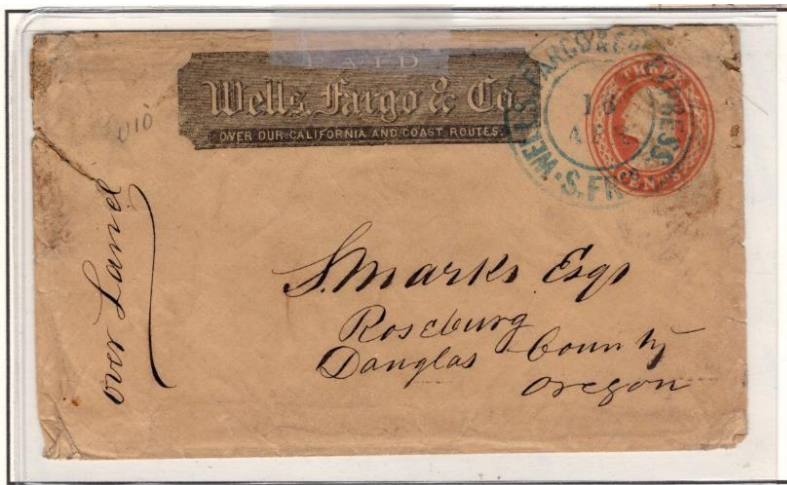 PAID
Wells, Fargo & Co.
OVER OUR CALIFORNIA AND COAST ROUTES.
WELLS FARGO & CO EXPRESS
16
S. FR
THREE
CENTS
U10
over Land
S. Marks Esqr
Roseburg
Douglas County
Oregon